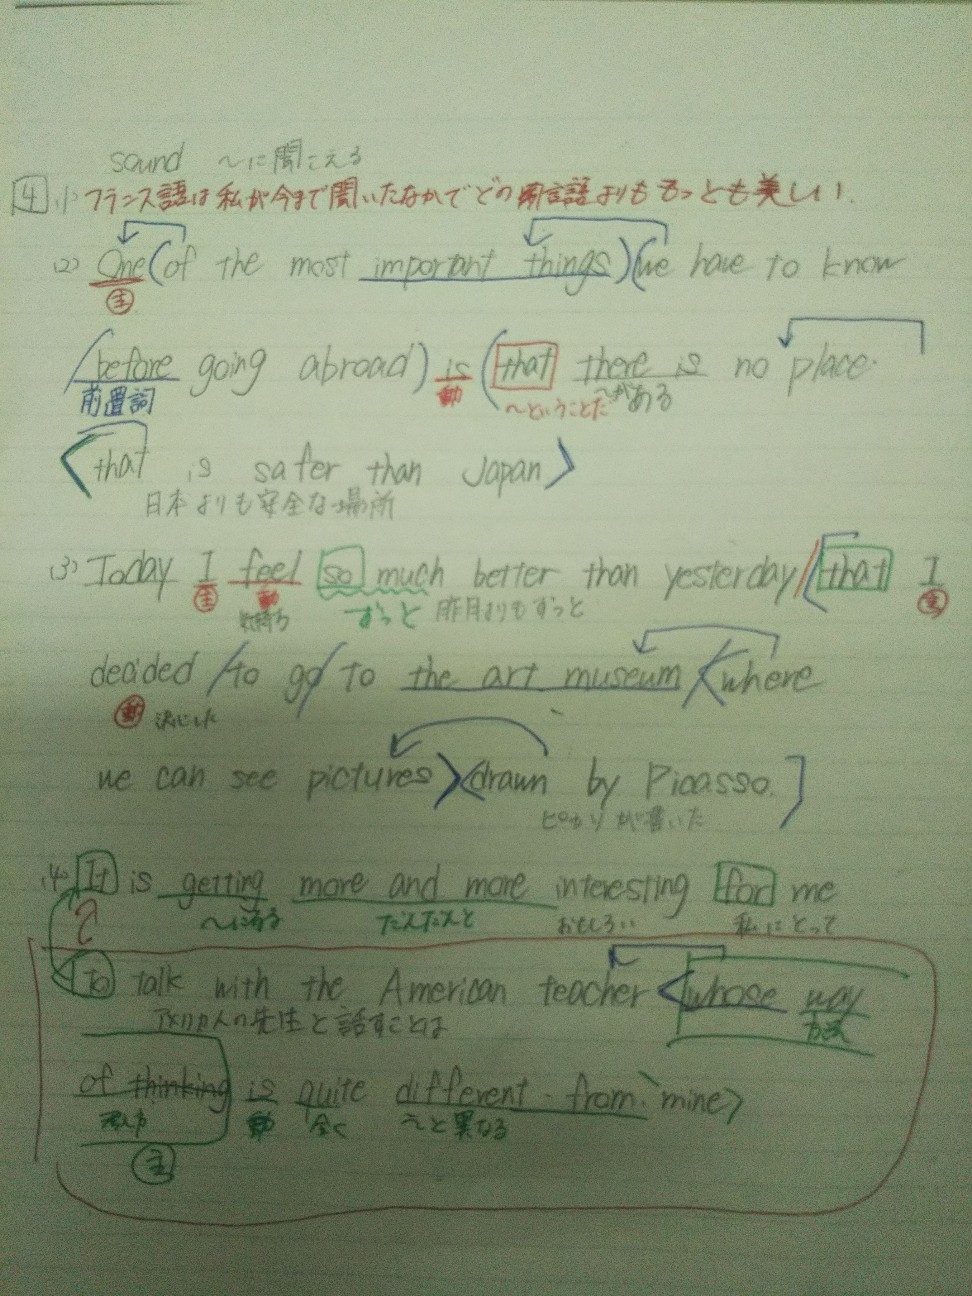 sound ～に聞こえる
4 (1) フランス語は私が今まで聞いたなかでどの言語よりももっとも美しい.
(2) One (of the most important things) (we have to know
主
(before going abroad) is (that there is no place
前置詞 動 ～ということだ ～がある
<that is safer than Japan>
日本よりも安全な場所
(3) Today I feel so much better than yesterday / (that I
主 動 気持ち ずっと 昨日よりもずっと 主
decided / to go / to the art museum <where
動 決心した
we can see pictures> <drawn by Picasso.]
ピカソが書いた
(4) It is getting more and more interesting for me
～になる だんだんと おもしろい 私にとって
to talk with the American teacher <whose way
アメリカ人の先生と話すことは 方法
of thinking is quite different from mine>
動 全く ～と異なる
主